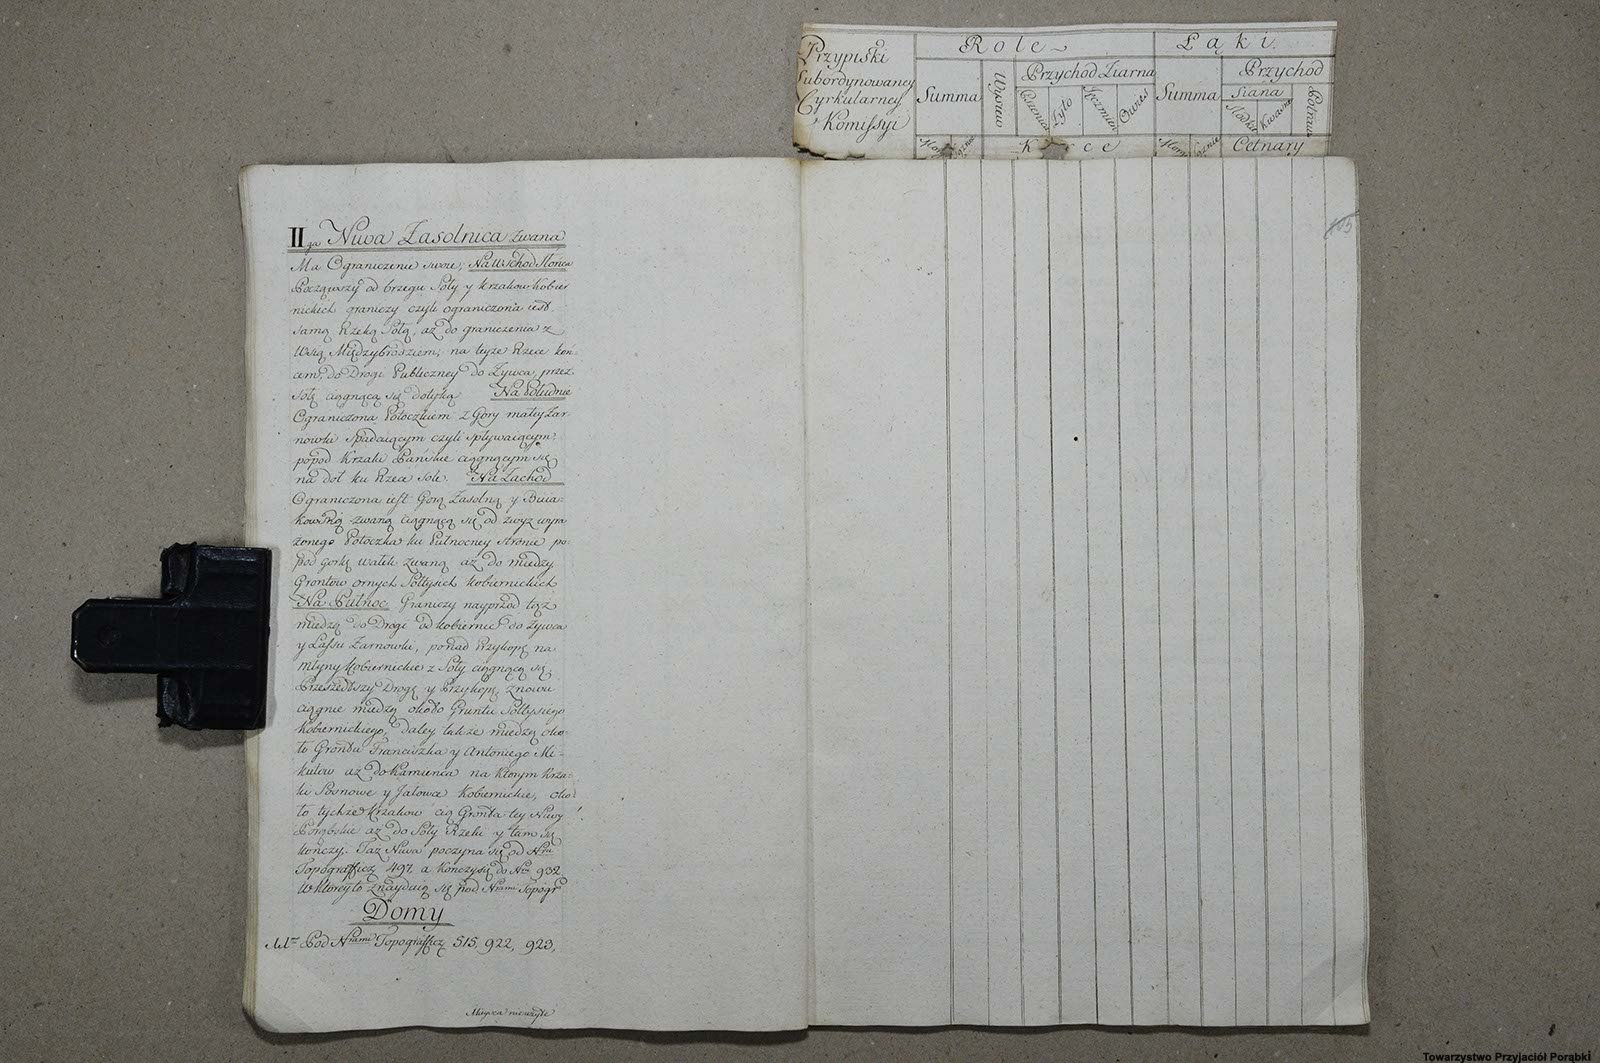 Przypiski
Subordynowaney
Cyrkularney
Komissyi
Role
Łąki
Summa
Wysiew
Przychod Ziarna
Pszenica
Zyto
Ięczmień
Owies
Summa
Przychod
Siana
Słodkie
Kwaśne
Potraw
Korce
Cetnary
105
II ga Niwa Zasolnica zwana
Ma Ograniczenie swoie, Na Wschod Słońca
Począwszy od brzegu Soły y krzakow kobier
nickich graniczy czyli ograniczona iest
samą Rzeką Sołą, aż do graniczenia z
Wsią Międzybrodziem, na teyże Rzece koń-
cem, do Drogi Publiczney do Żywca, przez
Sołę ciągnącą się dotyka Na Południe
Ograniczona Potoczkiem z Gory małey Żar
nowki spadaiącym czyli spływaiącym
popod Krzaki Pańskie ciągnącym się
na doł ku Rzece Sole. Na Zachod
Ograniczona iest Gorą Zasolną y Buia-
kowską zwaną ciągnącą się od zwyz wyra
żonego Potoczka ku Pułnocney stronie po-
pod gorkę Walek zwaną aż do miedzy
Grontow ornych Sołtysich kobiernickich
Na Pułnoc. Graniczy nayprzod tęż
miedzę do Drogi od kobiernic do Żywca
y Lassu Żarnowki, ponad Przykopę na
młyny kobiernickie z Soły ciągnącą się.
Przeszedłszy Drogę y Przykopę znowu
ciągnie miedzą około Gruntu Sołtysiego
kobiernickiego, daley także miedzą oko
ło Grontu Franciszka y Antoniego Mi-
kułow aż do Kamieńca na ktorym krza-
ki Sosnowe y Jałowce Kobiernickie, oko
ło tychże krzakow cią Gronta tey Niwy
Porąbskie aż do Soły Rzeki y tam się
kończy. Taż Niwa poczyna się od Nru
Topograficz 497 a kończy się do Nro 932
W ktorey to znayduią się pod Nrami Topogr
Domy
Pod Nrami Topograficz 515, 922, 923,
Mieysca nieużyte
Towarzystwo Przyjaciół Porąbki